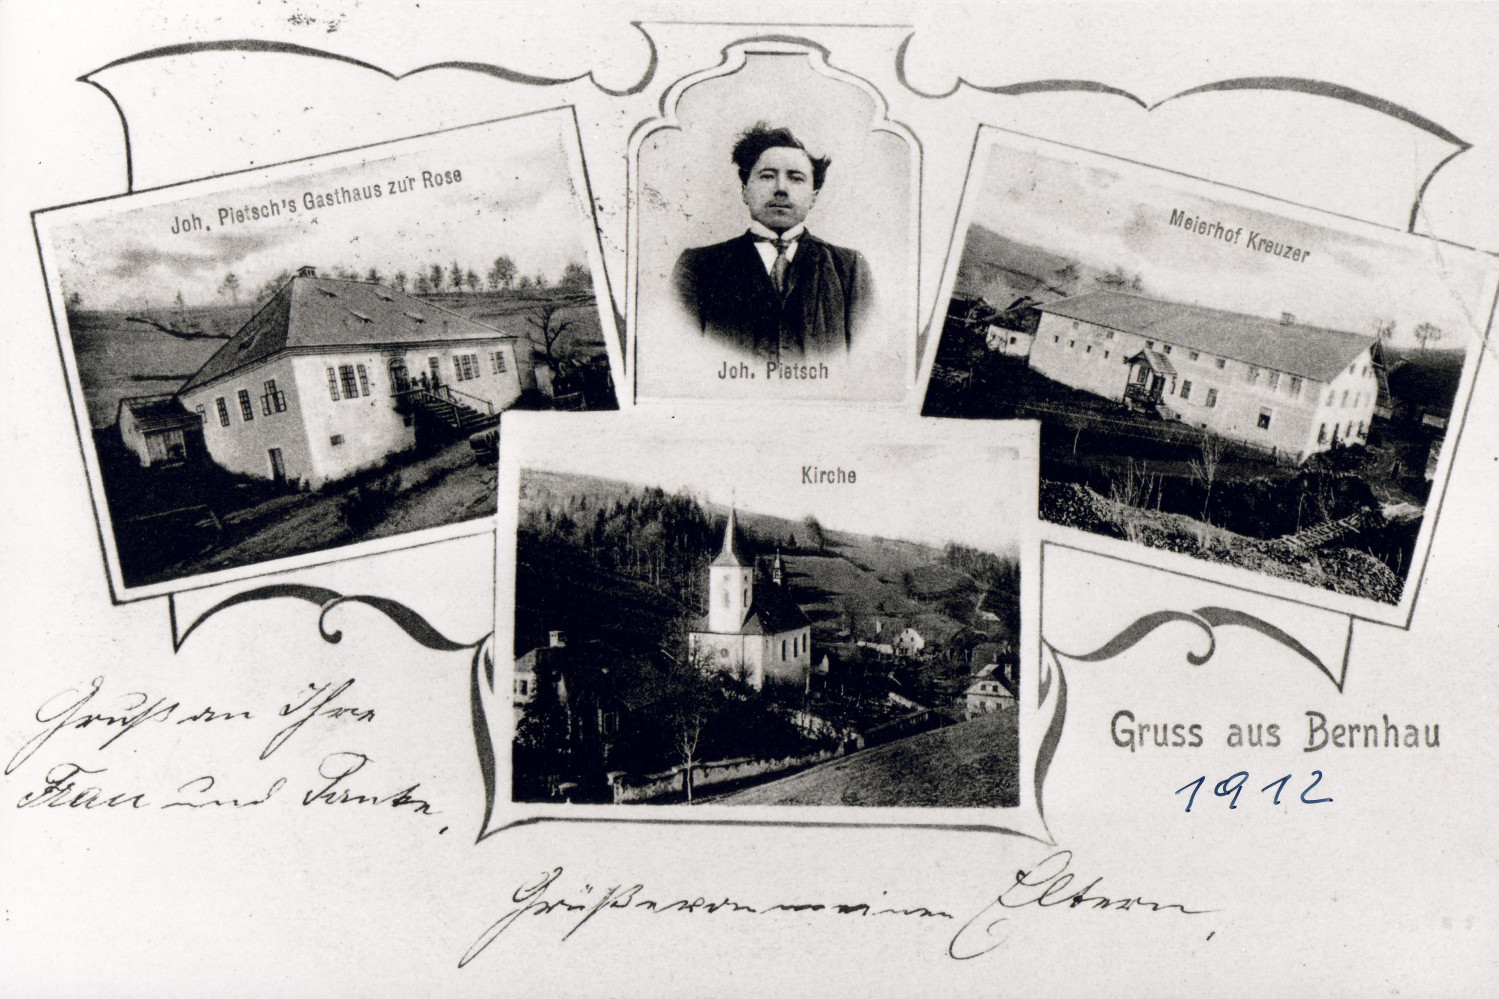 Joh. Pietsch's Gasthaus zur Rose
Joh. Pietsch
Meierhof Kreuzer
Kirche
Gruss aus Bernhau
1912
Gruß an Ihre
Frau und Tante,
Grüße von meinen Eltern,